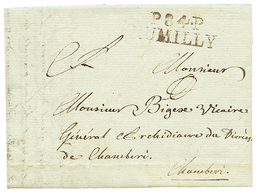 P84P
RUMILLY
Monsieur
Monsieur Bigex Vicaire
Général Archidiacre du Diocèse
de Chamberi.
Chamberi.